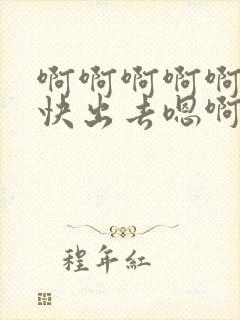 啊啊啊啊啊
快出去嗯啊
程年红